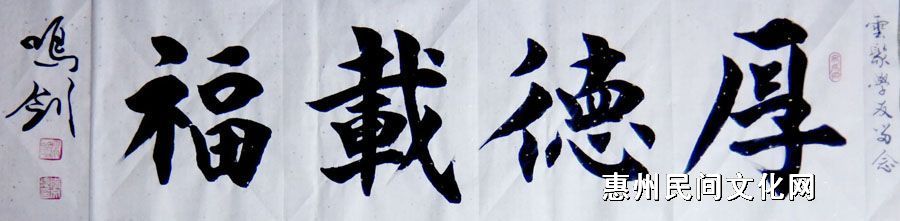 雲聚學友留念
厚德載福
鳴劍
惠州民间文化网